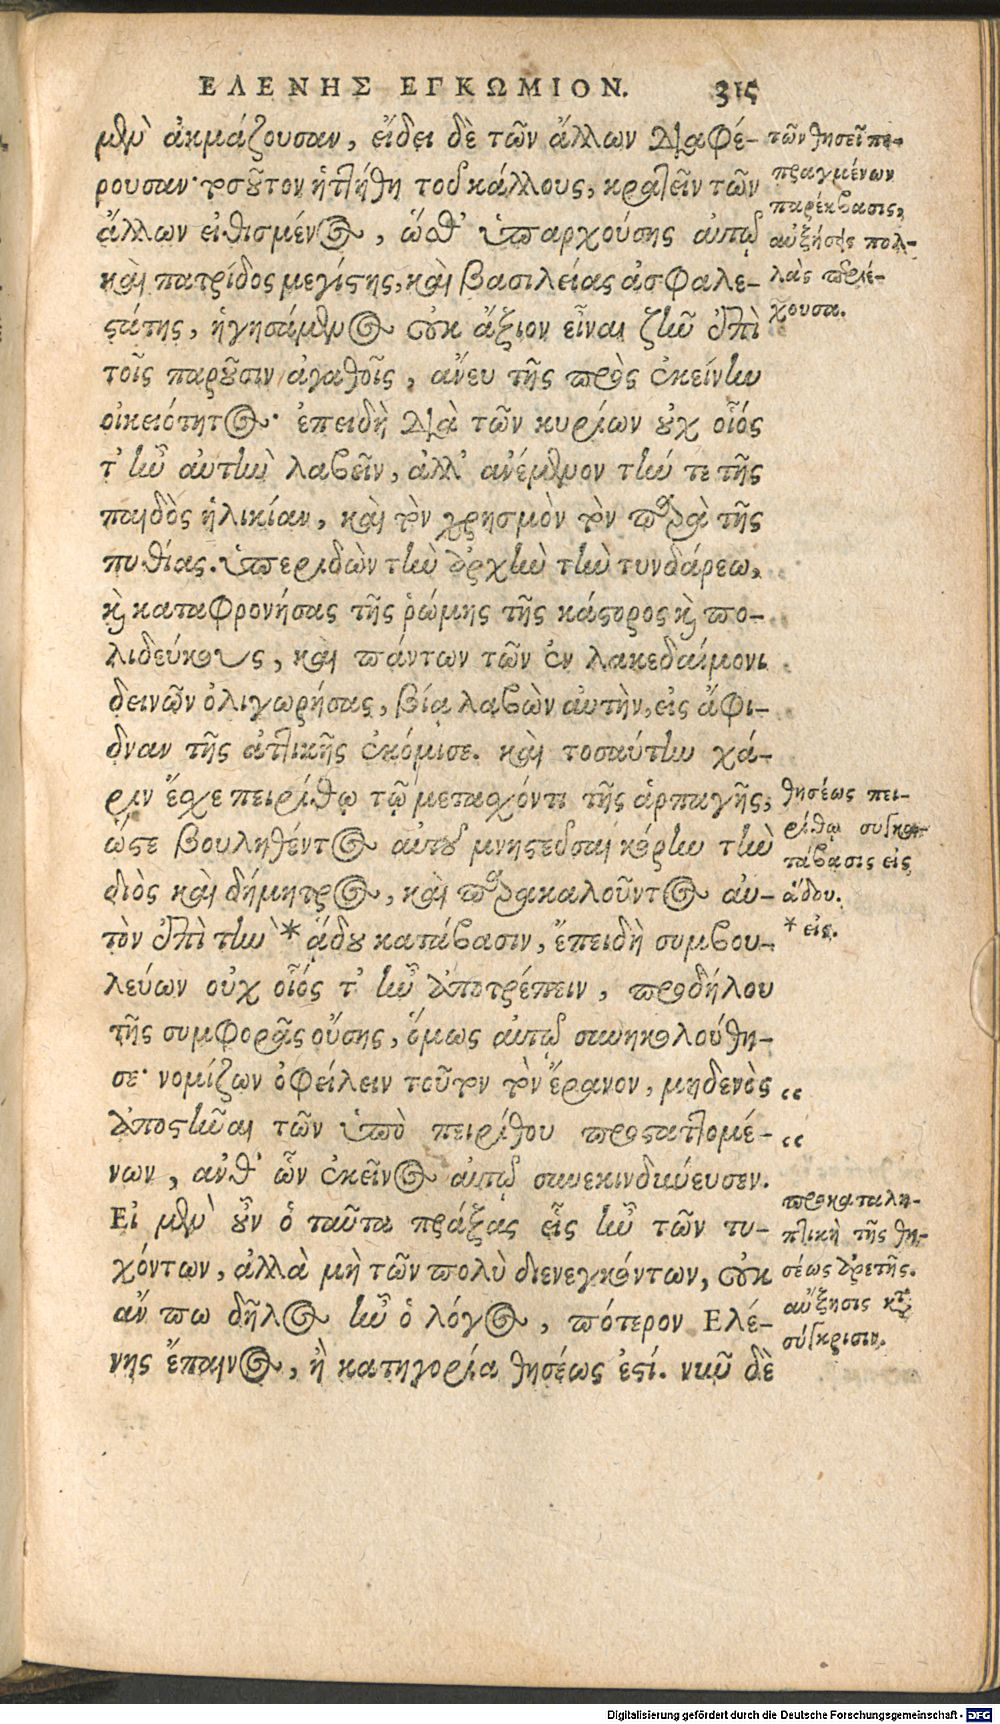 ΕΛΕΝΗΣ ΕΓΚΩΜΙΟΝ. 315
μὲν ἀκμάζουσαν, εἴδει δὲ τῶν ἄλλων διαφέ-
ρουσαν· τοσοῦτον ἡττήθη τοῦ κάλλους, κρατεῖν τῶν
ἄλλων εἰθισμένος, ὥσθ' ὑπαρχούσης αὐτῷ
καὶ πατρίδος μεγίστης, καὶ βασιλείας ἀσφαλε-
στάτης, ἡγησάμενος οὐκ ἄξιον εἶναι ζῆν ἐπὶ
τοῖς παροῦσιν ἀγαθοῖς, ἄνευ τῆς πρὸς ἐκείνην
οἰκειότητος· ἐπειδὴ διὰ τῶν κυρίων οὐχ οἷός
τ' ἦν αὐτὴν λαβεῖν, ἀλλ' ἀνέμενον τήν τε τῆς
παιδὸς ἡλικίαν, καὶ τὸν χρησμὸν τὸν παρὰ τῆς
πυθίας. ὑπεριδὼν τὴν ἀρχὴν τὴν τυνδάρεω,
καὶ καταφρονήσας τῆς ῥώμης τῆς κάστορος καὶ πο-
λιδεύκους, καὶ πάντων τῶν ἐν λακεδαίμονι
δεινῶν ὀλιγωρήσας, βίᾳ λαβὼν αὐτὴν, εἰς ἄφι-
δναν τῆς ἀττικῆς ἐκόμισε. καὶ τοσαύτην χά-
ριν ἔσχε πειρίθῳ τῷ μετασχόντι τῆς ἁρπαγῆς,
ὥστε βουληθέντος αὐτοῦ μνηστεῦσαι κόρην τὴν
διὸς καὶ δήμητρος, καὶ παρακαλοῦντος αὐ-
τὸν ἐπὶ τὴν * ᾅδου κατάβασιν, ἐπειδὴ συμβου-
λεύων οὐχ οἷός τ' ἦν ἀποτρέπειν, προδήλου
τῆς συμφορᾶς οὔσης, ὅμως αὐτῷ συνηκολούθη-
σε· νομίζων ὀφείλειν τοῦτον τὸν ἔρανον, μηδενὸς “
ἀποστῆναι τῶν ὑπὸ πειρίθου προσταττομέ- “
νων, ἀνθ' ὧν ἐκεῖνος αὐτῷ συνεκινδύνευσεν.
Εἰ μὲν οὖν ὁ ταῦτα πράξας εἷς ἦν τῶν τυ-
χόντων, ἀλλὰ μὴ τῶν πολὺ διενεγκόντων, οὐκ
ἄν πω δῆλος ἦν ὁ λόγος, πότερον Ελέ-
νης ἔπαινος, ἢ κατηγορία θησέως ἐστί. νῦν δὲ
τῶν θησεῖ πε-
πραγμένων
παρέκβασις,
αὐξήσεις πολ-
λὰς περιέ-
χουσα.
θησέως πει-
ρίθῳ συγκα-
τάβασις εἰς
ᾅδου.
* εἰς.
προκαταλη-
πτικὴ τῆς θη-
σέως ἀρετῆς.
αὔξησις κτ
σύγκρισιν.